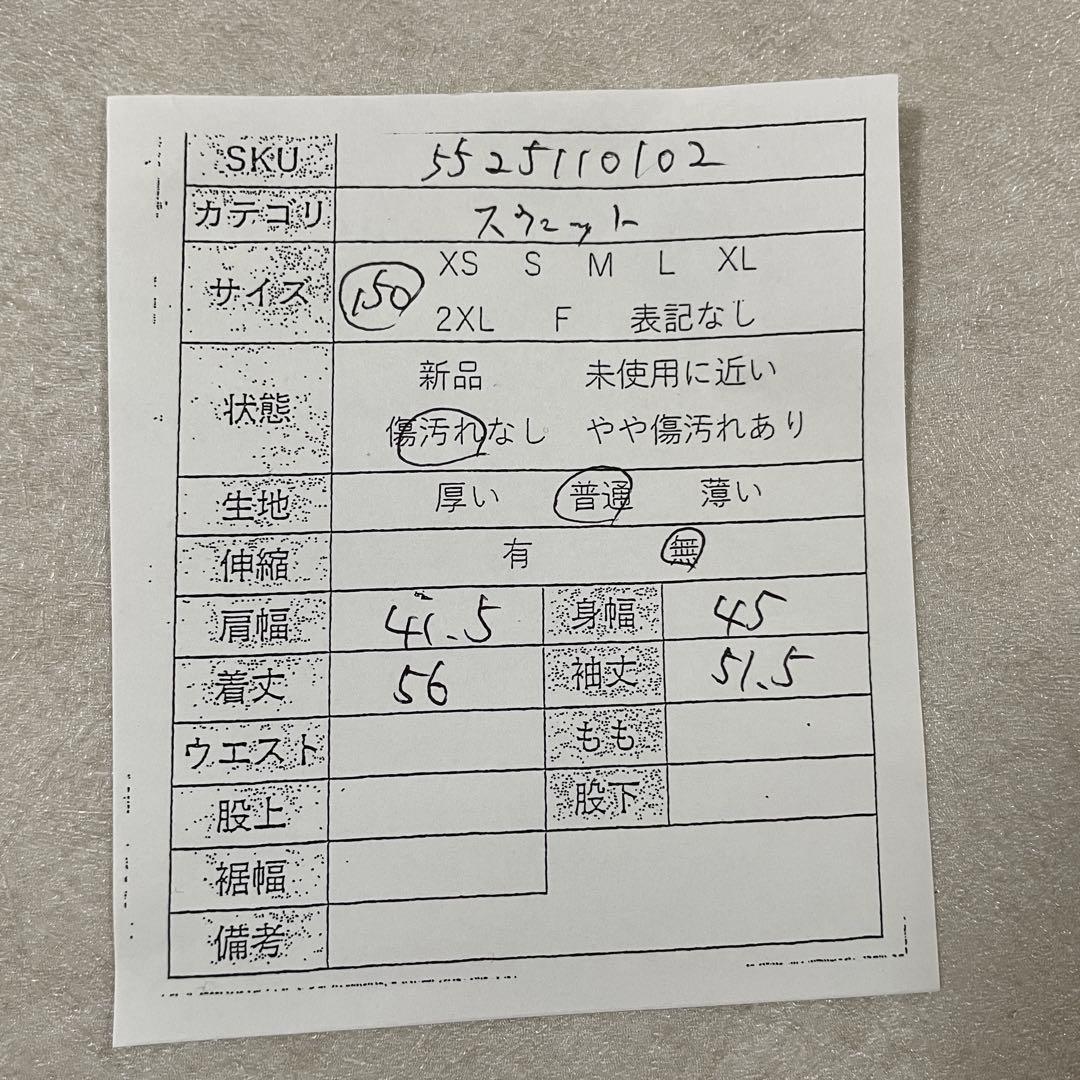 SKU 5525110102
カテゴリ スウェット
サイズ 150 XS S M L XL
2XL F 表記なし
状態 新品 未使用に近い
傷汚れなし やや傷汚れあり
生地 厚い 普通 薄い
伸縮 有 無
肩幅 41.5 身幅 45
着丈 56 袖丈 51.5
ウエスト もも
股上 股下
裾幅
備考